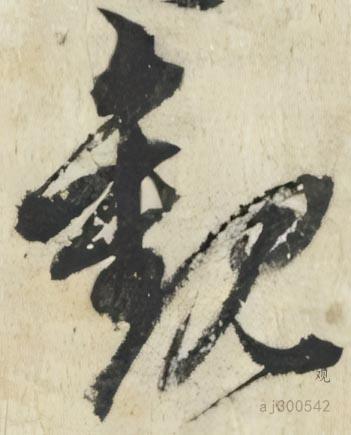 觀
观
aj300542